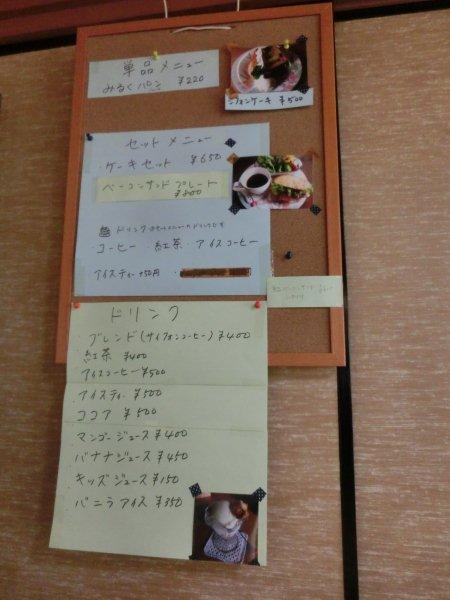 単品メニュー
みるくパン ¥220
フォンケーキ ¥500
セットメニュー
・ケーキセット ¥650
ベーコンサンドプレート
¥800
ドリンク
コーヒー ・紅茶 ・アイスコーヒー
アイスティー +50円
ドリンク
・ブレンド(サイフォンコーヒー) ¥400
・紅茶 ¥400
・アイスコーヒー ¥500
・アイスティ ¥500
・ココア ¥500
・マンゴージュース ¥400
・バナナジュース ¥450
・キッズジュース ¥150
・バニラアイス ¥350